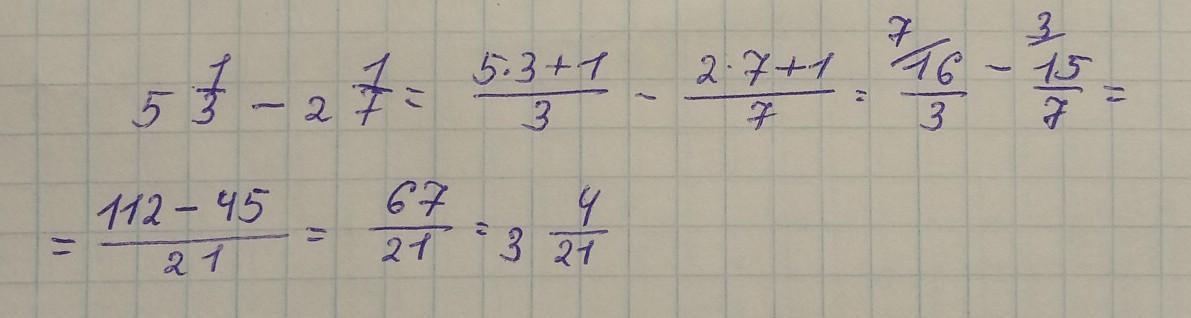 5 1/3 - 2 1/7 = (5·3+1)/3 - (2·7+1)/7 = 7/16/3 - 3/15/7 =
= (112 - 45)/21 = 67/21 = 3 4/21